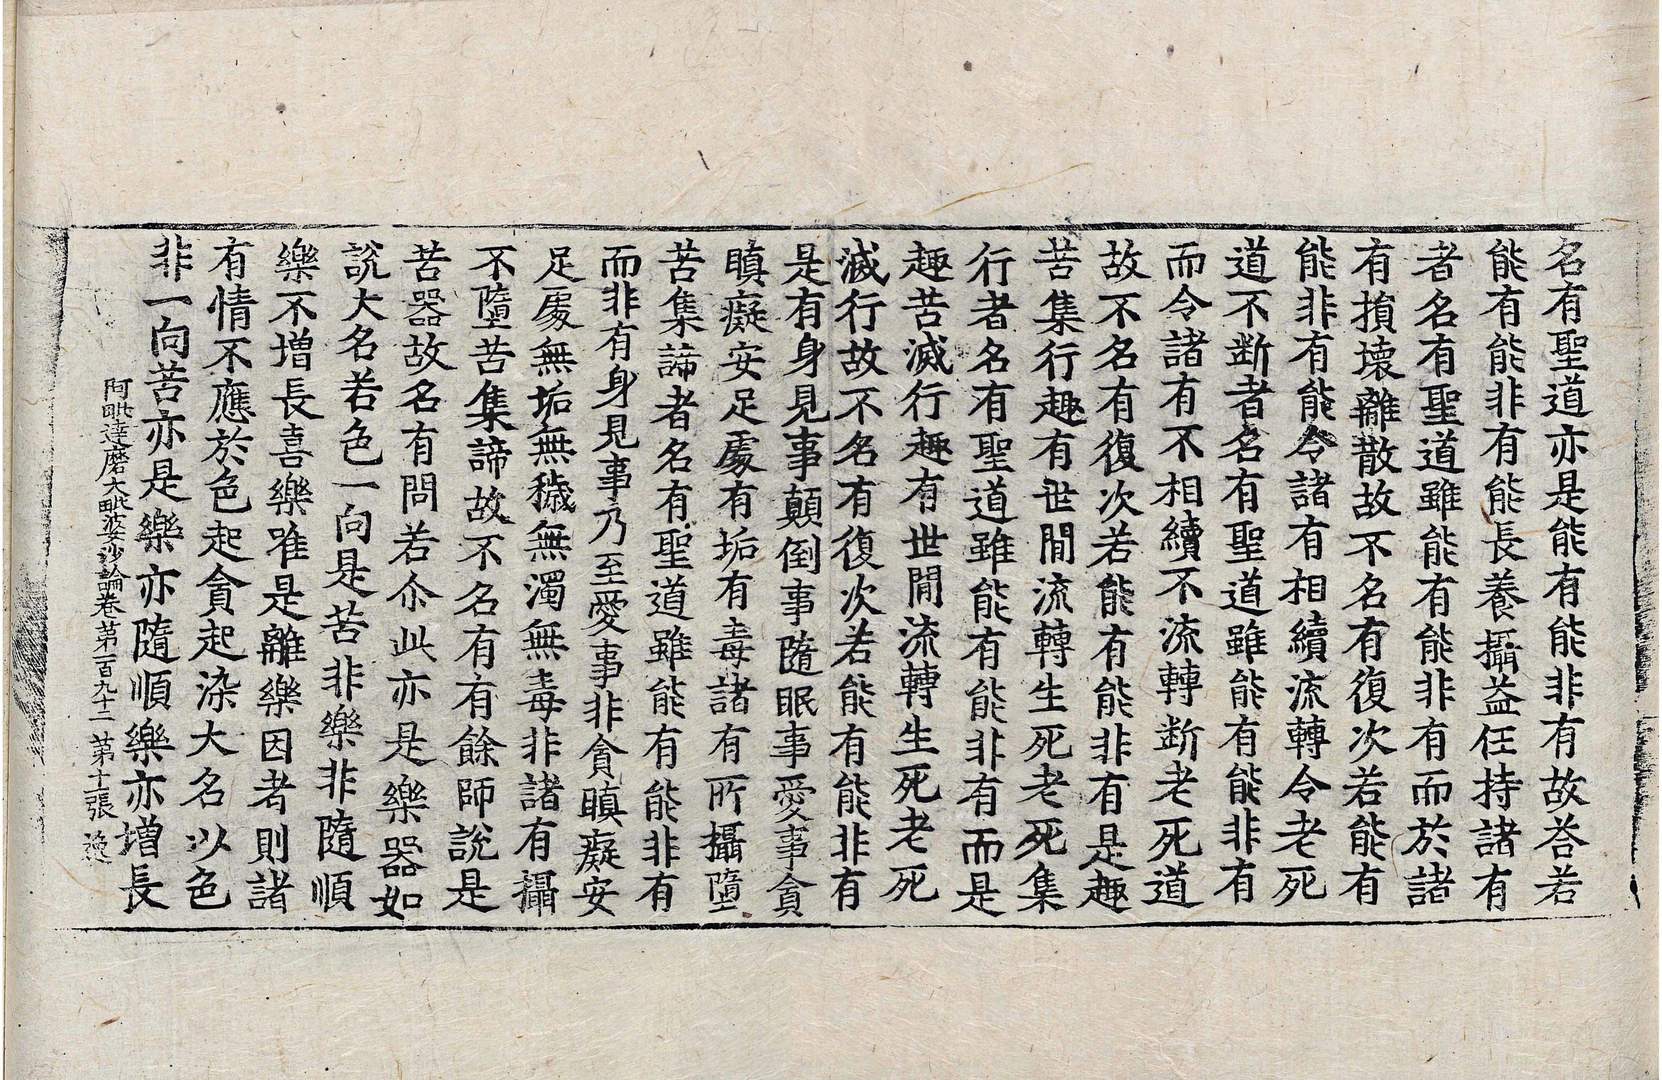 名有聖道亦是能有能非有故荅若
能有能非有能長養攝益任持諸有
者名有聖道雖能有能非有而於諸
有損壞離散故不名有復次若能有
能非有能令諸有相續流轉令老死
道不断者名有聖道雖能有能非有
而令諸有不相續不流轉断老死道
故不名有復次若能有能非有是趣
苦集行趣有世間流轉生死老死集
行者名有聖道雖能有能非有而是
趣苦滅行趣有世間流轉生死老死
滅行故不名有復次若能有能非有
是有身見事顛倒事隨眠事愛事貪
瞋癡安足處有垢有毒諸有所攝墮
苦集諦者名有聖道雖能有能非有
而非有身見事乃至愛事非貪瞋癡安
足處無垢無穢無濁無毒非諸有攝
不墮苦集諦故不名有有餘師說是
苦器故名有問若尒此亦是樂器如
說大名若色一向是苦非樂非隨順
樂不增長喜樂唯是離樂因者則諸
有情不應於色起貪起染大名以色
非一向苦亦是樂亦隨順樂亦增長
阿毗達磨大毗婆沙論卷第一百九十二 第十一張 逸